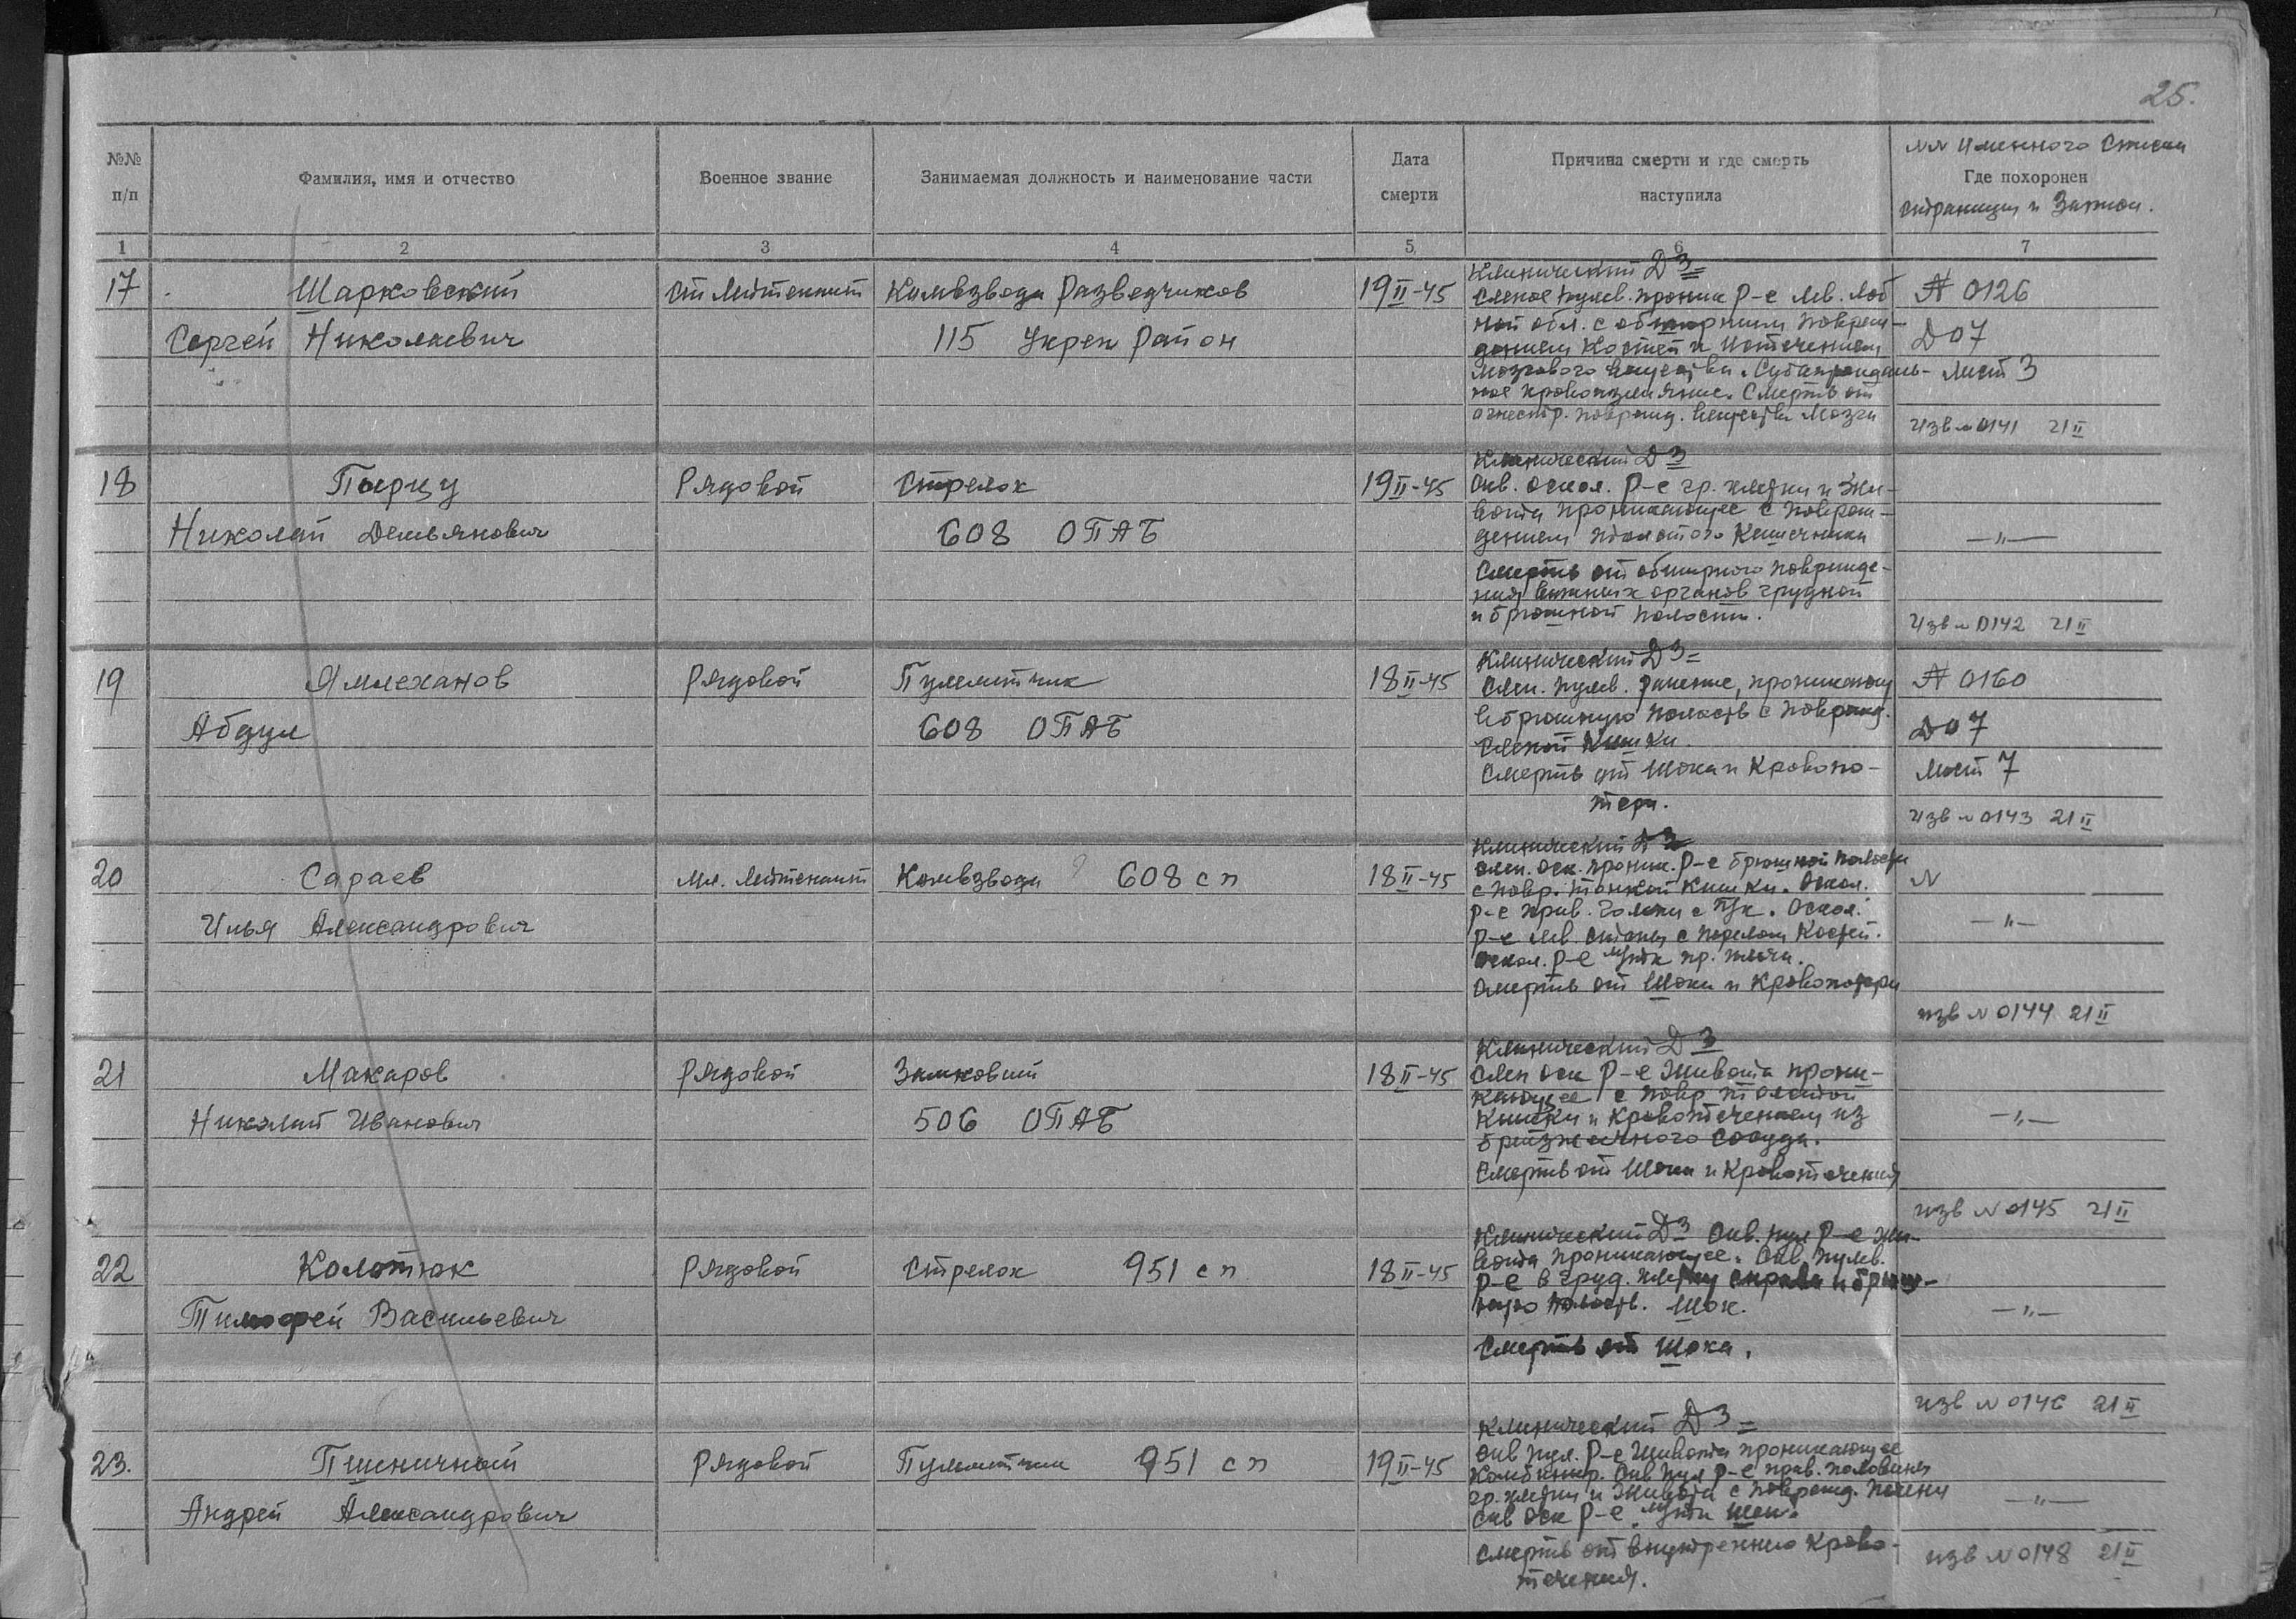 25.
№№ п/п
Фамилия, имя и отчество
Военное звание
Занимаемая должность и наименование части
Дата смерти
Причина смерти и где смерть наступила
№№ именного списка
Где похоронен
страницы и записи.
1 2 3 4 5 6 7
17 Шарковский
Сергей Николаевич
Ст. Лейтенант
Комвзвода Разведчиков
115 Укреп Район
19 II-45
Клинический ДЗ=
Слепое пулев. проник р-е лев. лоб
ной обл. с обширным повреж-
дением костей и истечением
мозгового вещества. Субарахноидаль-
ное кровоизлияние. Смерть от
огнестр. поврежд. вещества мозга
№ 0126
Д 07
Лист 3
Изв № 0141 21 II
18 Пырцу
Николай Демьянович
Рядовой
Стрелок
608 ОПАБ
19 II-45
Клинический ДЗ
Скв. оскол. р-е гр. клетки и жи-
вота проникающее с повреж-
дением толстого кишечника
Смерть от обширного поврежде-
ния важных органов грудной
и брюшной полости.
—"—
Изв № 0142 21 II
19 Ямлеханов
Абдул
Рядовой
Пулеметчик
608 ОПАБ
18 II-45
Клинический ДЗ=
Слеп. пулев. ранение, проникающ
в брюшную полость с поврежд.
слепой кишки.
Смерть от шока и кровопо-
тери.
№ 0160
Д 07
Лист 7
Изв № 0143 21 II
20 Сараев
Илья Александрович
Мл. Лейтенант
Комвзвода ? 608 сп
18 II-45
Клинический ДЗ
слеп. оск. проник. р-е брюшной полости
с повр. тонкой кишки. Оскол.
р-е прав. голени с п/к. Оскол.
р-е лев. стопы с перелом костей.
Оскол. р-е мягк пр. плеча.
Смерть от шока и кровопотери
№
—"—
изв № 0144 21 II
21 Макаров
Николай Иванович
Рядовой
Замковый
506 ОПАБ
18 II-45
Клинический ДЗ
слеп оск р-е живота прони-
кающее с повр толстой
кишки и кровотечением из
брызжеечного сосуда.
Смерть от шока и кровотечения
—"—
изв № 0145 21 II
22 Колотюк
Тимофей Васильевич
Рядовой
Стрелок 951 сп
18 II-45
Клинический ДЗ Скв. пул р-е жи-
вота проникающее. Скв. пулев.
р-е в груд. клетку справа и брюш-
ную полость. Шок.
Смерть от шока.
—"—
изв № 0146 21 II
23. Пшеничный
Андрей Александрович
Рядовой
Пулеметчик 951 сп
19 II-45
Клинический ДЗ=
Скв пул. р-е живота проникающее
Комбинир. Скв пул р-е прав. половины
гр. клетки и живота с поврежд. печени
Скв оск р-е мягк шеи.
Смерть от внутреннего крово-
течения.
—"—
изв № 0148 21 II